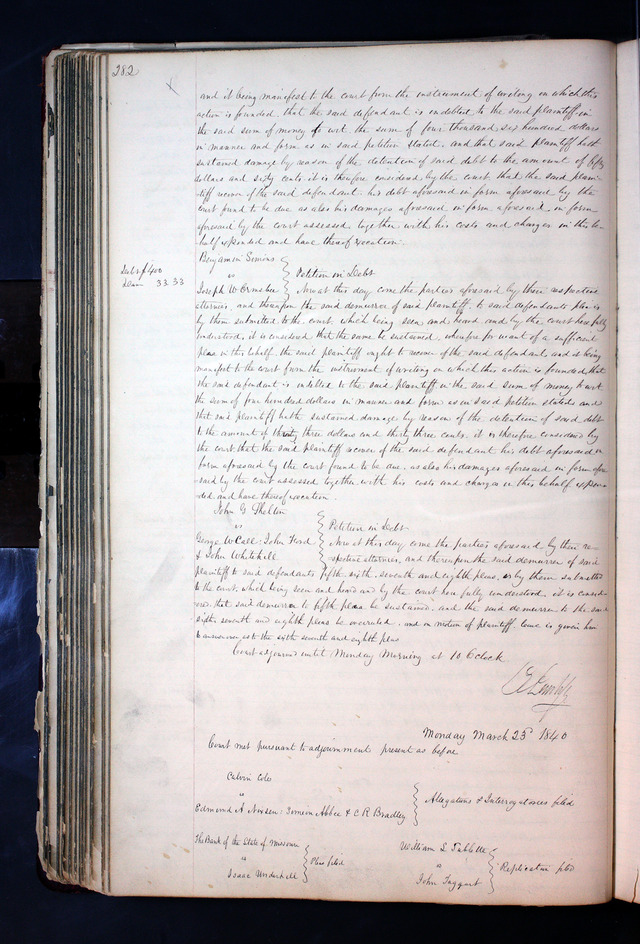 282
and it being manifest to the court from the instrument of writing on which this
action is founded, that the said defendant is indebted to the said plaintiff in
the said sum of money to wit the sum of four thousand six hundred dollars
in manner and form as in said petition stated, and that said plaintiff hath
sustained damage by reason of the detention of said debt to the amount of fifty
dollars and sixty cents, it is therefore considered by the court that the said plain-
tiff recover of the said defendant his debt aforesaid in form aforesaid by the
court found to be due as also his damages aforesaid in form aforesaid in form
aforesaid by the court assessed together with his costs and charges in this be-
half expended and have thereof execution.
Benjamin Simons
vs
Joseph W
Petition in Debt
Debt $400
Dam 33.33
Now at this day come the parties aforesaid by their respective
attornies, and thereupon the said demurrer of said plaintiff to said defendants plea is
by them submitted to the court, which being seen and heard and by the court here fully
understood, it is considered, that the same be sustained, wherefore for want of a sufficient
plea in this behalf the said plaintiff ought to recover of the said defendant and it being
manifest to the court from the instrument of writing on which this action is founded, that
the said defendant is indebted to the said plaintiff in the said sum of money to wit
the sum of four hundred dollars in manner and form as in said petition stated and
that said plaintiff hath sustained damage by reason of the detention of said debt
to the amount of thirty three dollars and thirty three cents, it is therefore considered by
the court that the said plaintiff recover of the said defendant his debt aforesaid in
form aforesaid by the court found to be due, as also his damages aforesaid in form afore
said by the court assessed together with his costs and charges in this behalf expen
ded and have thereof execution.
John G Shelton
vs
George W Call John Ford
& John Whitehill
Petition in Debt
Now at this day come the parties aforesaid by their re-
spective attornies, and thereupon the said demurrer of said
plaintiff to said defendants fifth sixth seventh and eighth pleas, is by them submitted
to the court, which being seen and heard and by the court here fully understood, it is consid-
ered, that said demurrer to fifth plea be sustained, and the said demurrer to the said
sixth seventh and eighth pleas be overruled, and on motion of plaintiff, leave is given him
to answer as to the sixth seventh and eighth pleas
Court adjourned until Monday Morning at 10 O'clock
Monday March 23d 1840
Court met pursuant to adjournment present as before
Calvin Cole
vs
Edmond A Abbee & C R Bradley
Allegations & Interrogatories filed
The Bank of the State of Missouri
vs
Isaac Underhill
Plea filed
William L Sublette
vs
John Taggart
Replication filed